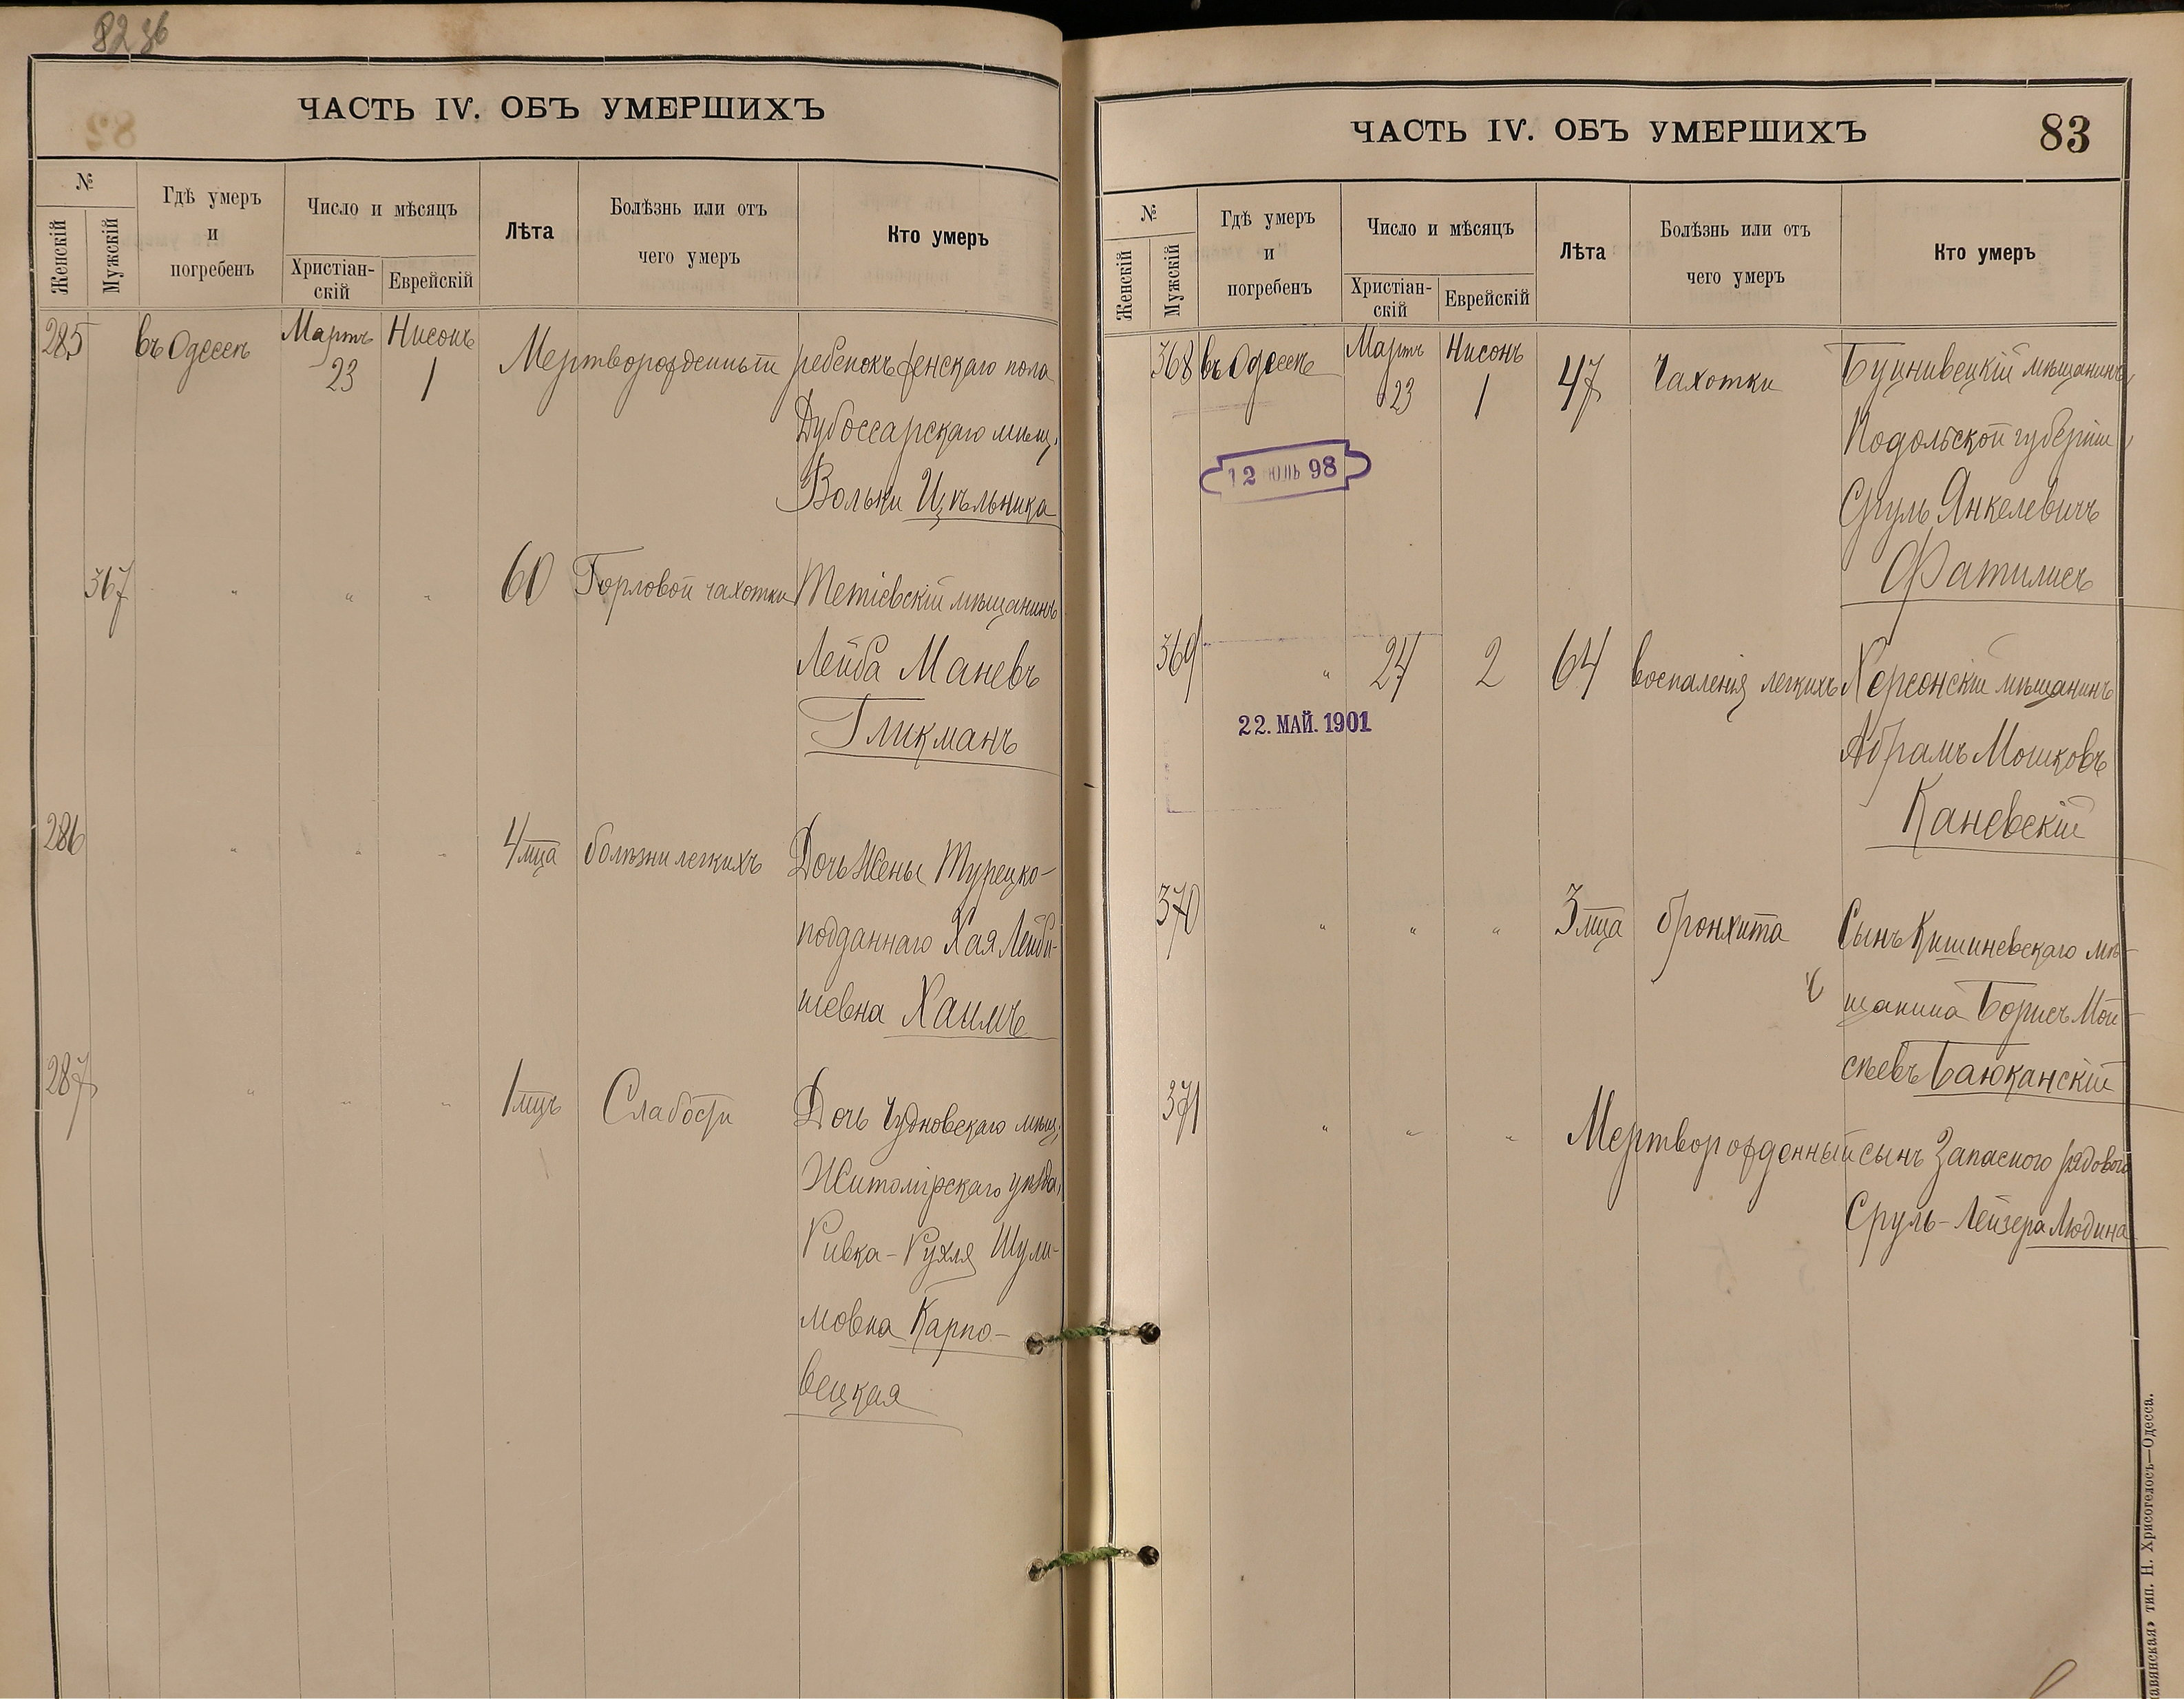 82 36
ЧАСТЬ IV. ОБЪ УМЕРШИХЪ
№
Женскій
Мужскій
Гдѣ умеръ
и
погребенъ
Число и мѣсяцъ
Христіан-
скій
Еврейскій
Лѣта
Болѣзнь или отъ
чего умеръ
Кто умеръ
285 въ Одессѣ Мартъ 23 Нисонъ 1 Мертворожденный ребенокъ женскаго пола
Дубоссарскаго мѣщ.
Вольки Цѣльника
367 " " " 60 Горловой чахотки Тетіевскій мѣщанинъ
Лейба Маневъ
Гликманъ
286 " " " 4 мца болѣзни легкихъ Дочь Жены Турецко-
подданнаго Хая Лейби-
шевна Хаимъ
287 " " " 1 мцъ Слабости Дочь Чудновскаго мѣщ.
Житомірскаго уѣзда,
Ривка-Рухля Шули-
мовна Карпо-
вецкая
ЧАСТЬ IV. ОБЪ УМЕРШИХЪ
83
№
Женскій
Мужскій
Гдѣ умеръ
и
погребенъ
Число и мѣсяцъ
Христіан-
скій
Еврейскій
Лѣта
Болѣзнь или отъ
чего умеръ
Кто умеръ
368 въ Одессѣ Мартъ 23 Нисонъ 1 47 Чахотки Буцнивецкій мѣщанинъ
Подольской губерніи
Сруль Янкелевичъ
Фатилисъ
12 ЮЛЬ 98
369 " 24 2 64 воспаленія легкихъ Херсонскій мѣщанинъ
Абрамъ Мошковъ
Каневскій
22. МАЙ. 1901
370 " " " 3 мца бронхита Сынъ Кишиневскаго мѣ-
щанина Борисъ Мои-
сѣевъ Баюканскій
371 " " " Мертворожденный сынъ Запасного рядового
Сруль-Лейзера Людина
авянская» тип. Н. Хрисогелосъ—Одесса.